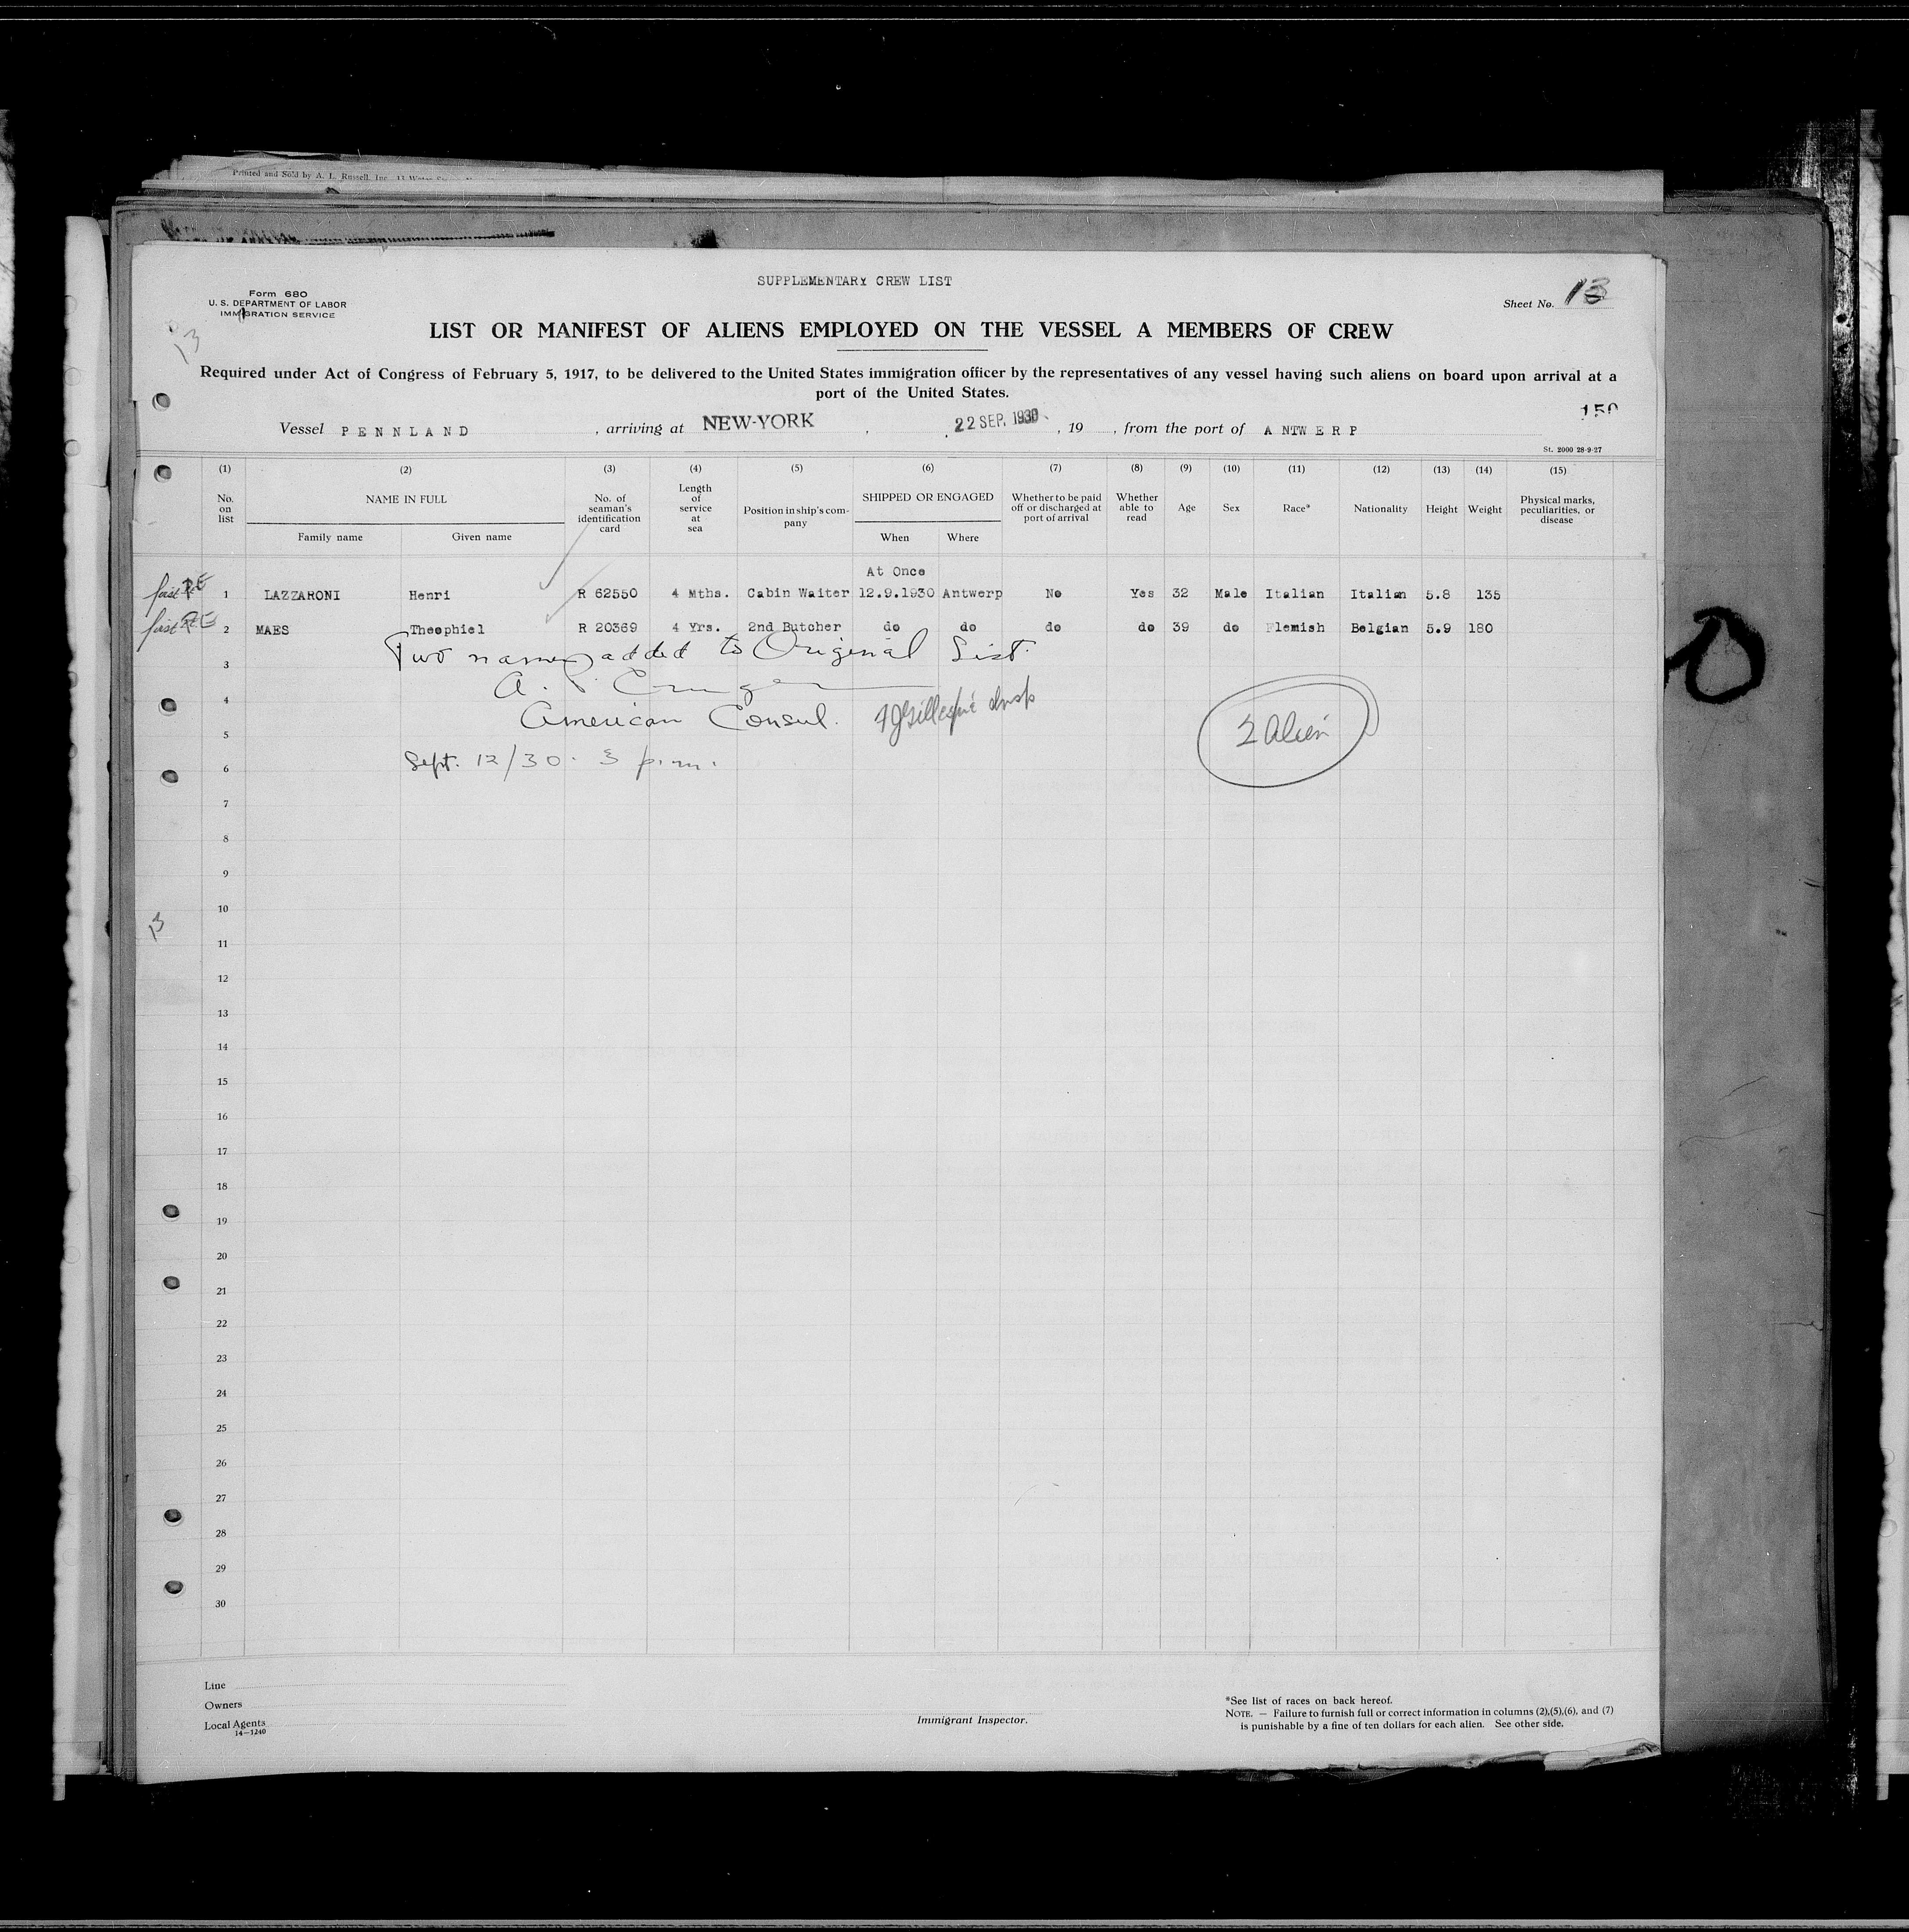 Printed and Sold by A. L. Russell, Inc.
SUPPLEMENTARY CREW LIST
Form 680
U. S. DEPARTMENT OF LABOR
IMMIGRATION SERVICE
Sheet No. 13
13
LIST OR MANIFEST OF ALIENS EMPLOYED ON THE VESSEL A MEMBERS OF CREW
Required under Act of Congress of February 5, 1917, to be delivered to the United States immigration officer by the representatives of any vessel having such aliens on board upon arrival at a
port of the United States.
150
Vessel PENNLAND , arriving at NEW-YORK , 22 SEP. 1930 , 19 , from the port of ANTWERP
St. 2000 28-9-27
(1) (2) (3) (4) (5) (6) (7) (8) (9) (10) (11) (12) (13) (14) (15)
No. on list NAME IN FULL No. of seaman's identification card Length of service at sea Position in ship's company SHIPPED OR ENGAGED Whether to be paid off or discharged at port of arrival Whether able to read Age Sex Race* Nationality Height Weight Physical marks, peculiarities, or disease
Family name Given name When Where
At Once
first 1 LAZZARONI Henri R 62550 4 Mths. Cabin Waiter 12.9.1930 Antwerp No Yes 32 Male Italian Italian 5.8 135
first 2 MAES Theophiel R 20369 4 Yrs. 2nd Butcher do do do do 39 do Flemish Belgian 5.9 180
Two names added to Original List.
3
4
American Consul.
2 Alien
5
Sept. 12/30. 3 p.m.
6
7
8
9
10
13
11
12
13
14
15
16
17
18
19
20
21
22
23
24
25
26
27
28
29
30
Line
Owners
Local Agents
14-1240
Immigrant Inspector.
*See list of races on back hereof.
NOTE. — Failure to furnish full or correct information in columns (2),(5),(6), and (7)
is punishable by a fine of ten dollars for each alien. See other side.